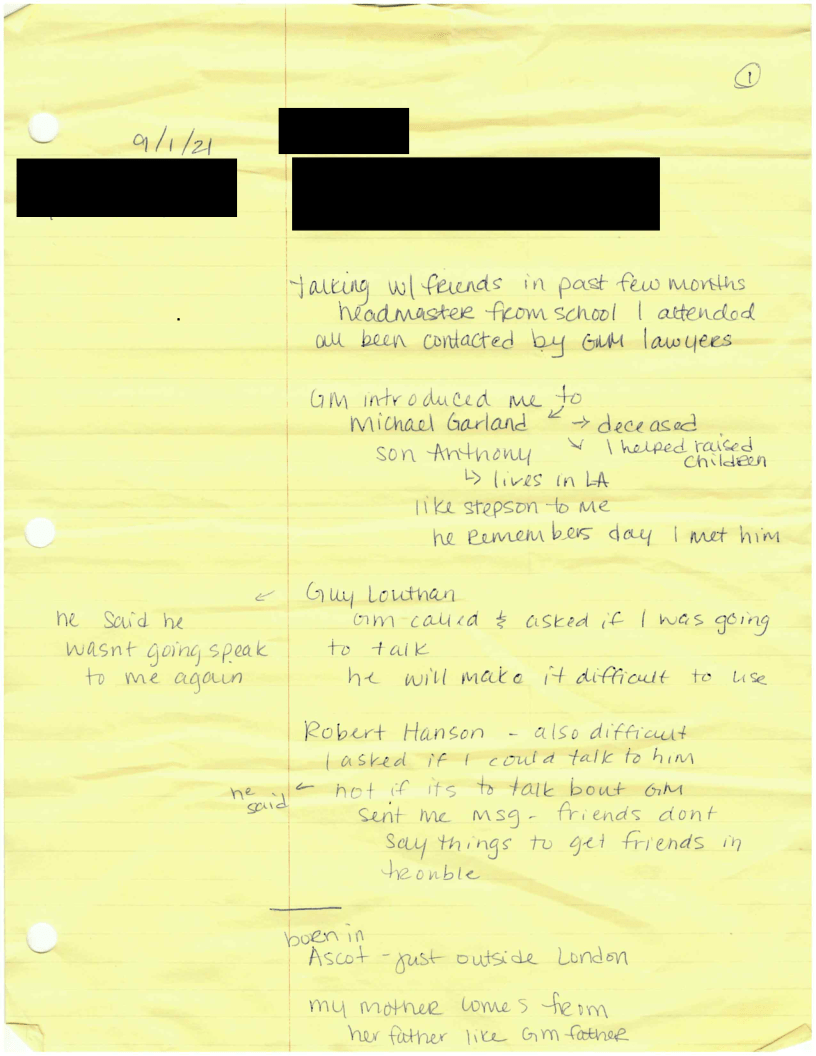 1
9/1/21
talking w/ friends in past few months
headmaster from school I attended
all been contacted by GM lawyers
GM introduced me to
Michael Garland → deceased
son Anthony I helped raised
children
↳ lives in LA
like stepson to me
he remembers day I met him
← Guy Louthan
GM called & asked if I was going
to talk
he will make it difficult to use
he said he
wasnt going speak
to me again
Robert Hanson - also difficult
I asked if I could talk to him
he said ← not if its to talk bout GM
sent me msg - friends dont
say things to get friends in
trouble
born in
Ascot - just outside London
my mother comes from
her father like GM father